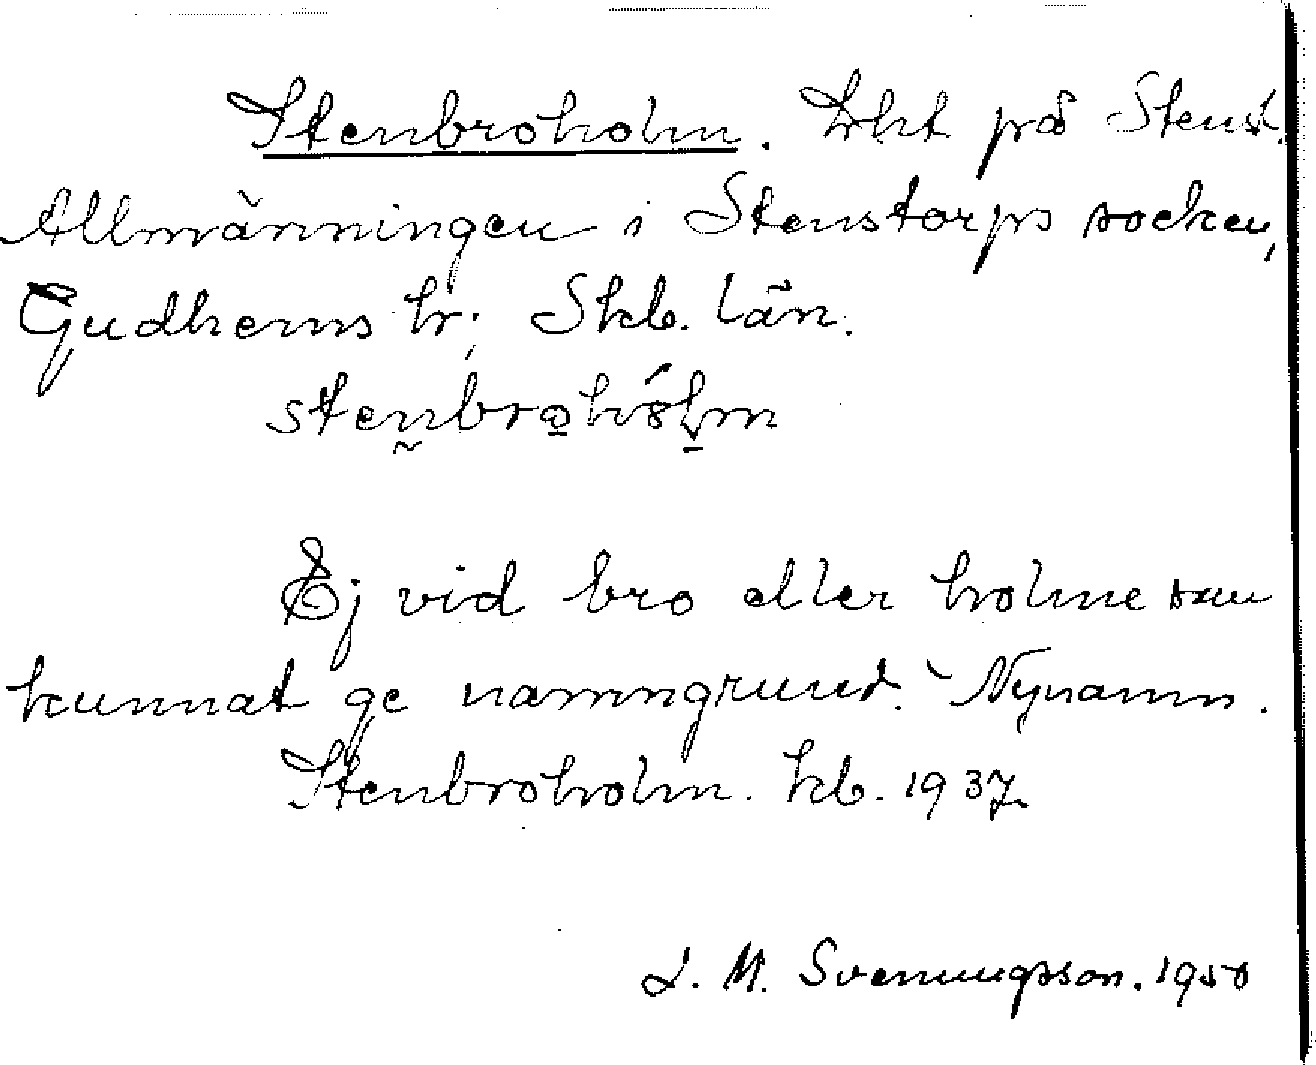 Stenbroholm. Lht på Stenst.
Allmänningen i Stenstorps socken,
Gudhems hr; Skb. län.
stenbrohólm
Ej vid bro eller holme som
kunnat ge namngrund. Nynamn.
Stenbroholm. kb. 1937.
L. M. Svenungsson. 1950